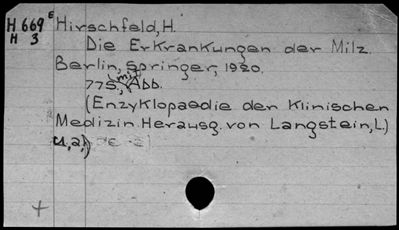 H 669 E Hirschfeld, H.
H 3
Die Erkrankungen der Milz.
Berlin, Springer, 1920.
77S., mit Abb.
(Enzyklopaedie der Klinischen
Medizin. Herausg. von Langstein, L.)
u.a.)